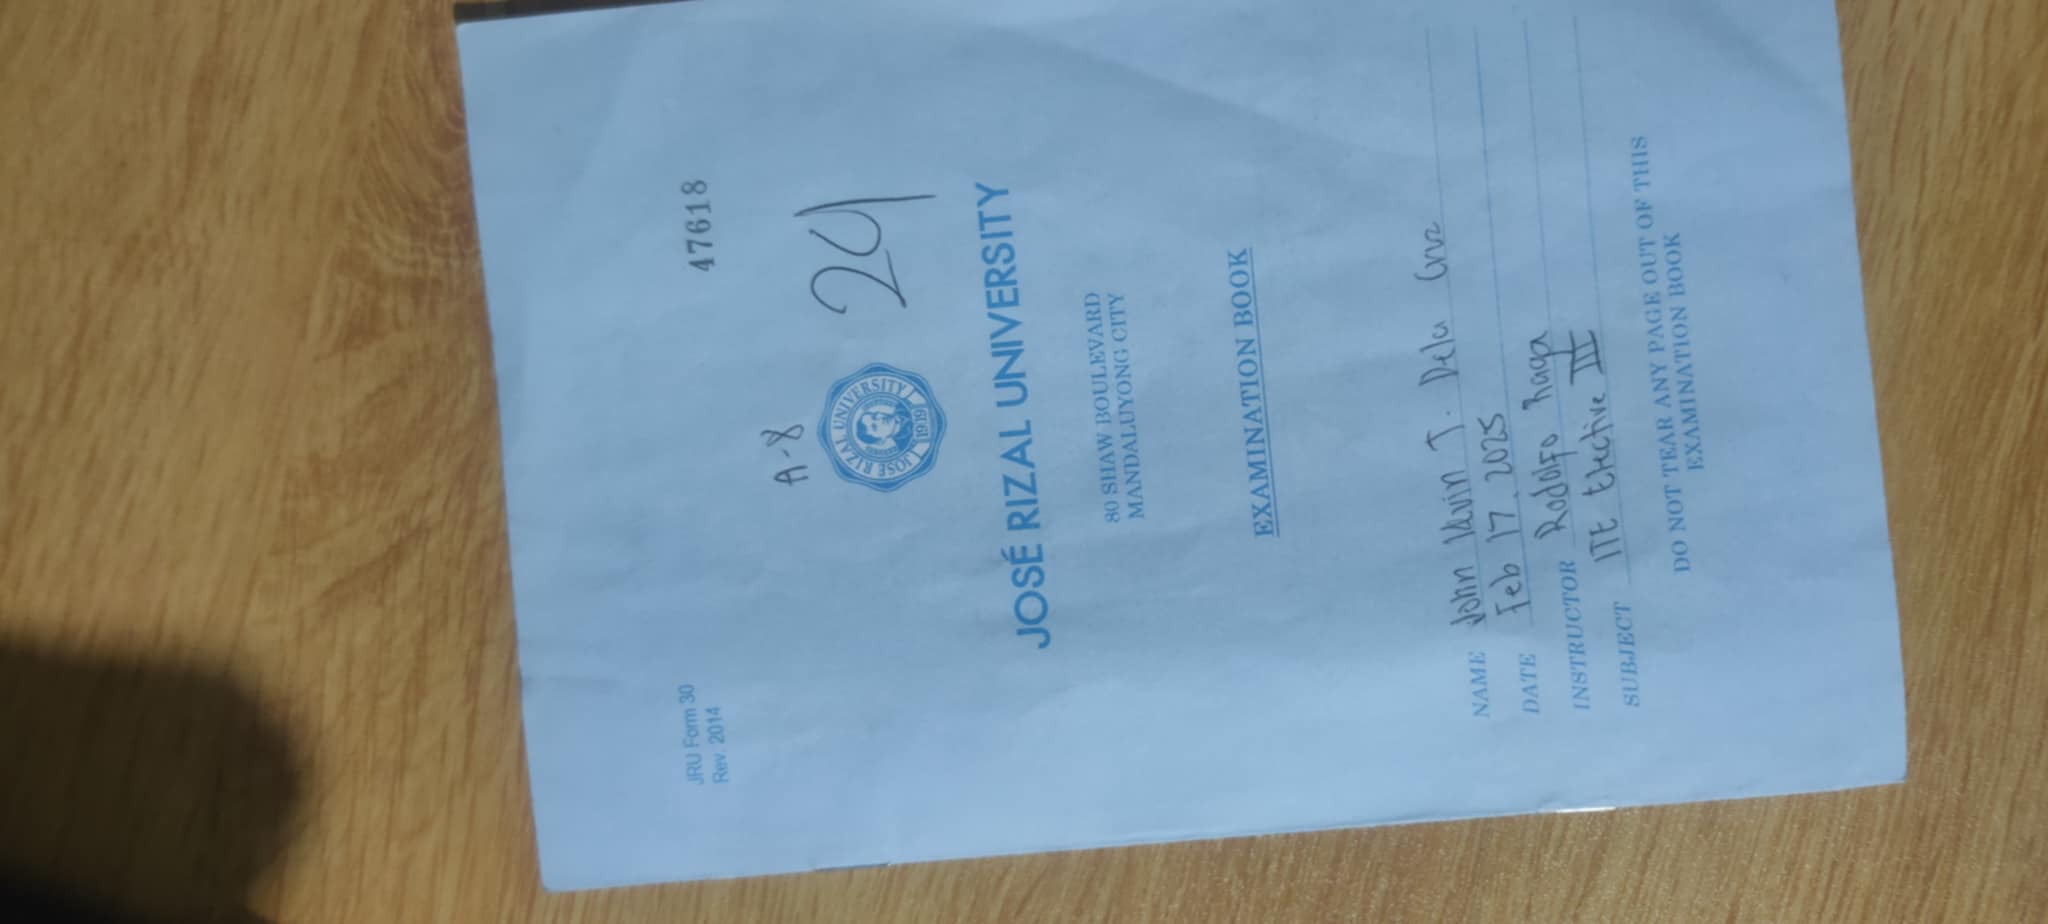 JRU Form 30
Rev. 2014
47618
A-8
24
JOSE RIZAL UNIVERSITY
1919
JOSÉ RIZAL UNIVERSITY
80 SHAW BOULEVARD
MANDALUYONG CITY
EXAMINATION BOOK
NAME John Kevin T. Dela Cruz
DATE Feb 17, 2025
INSTRUCTOR Rodolfo Raga
SUBJECT ITE Elective III
DO NOT TEAR ANY PAGE OUT OF THIS
EXAMINATION BOOK